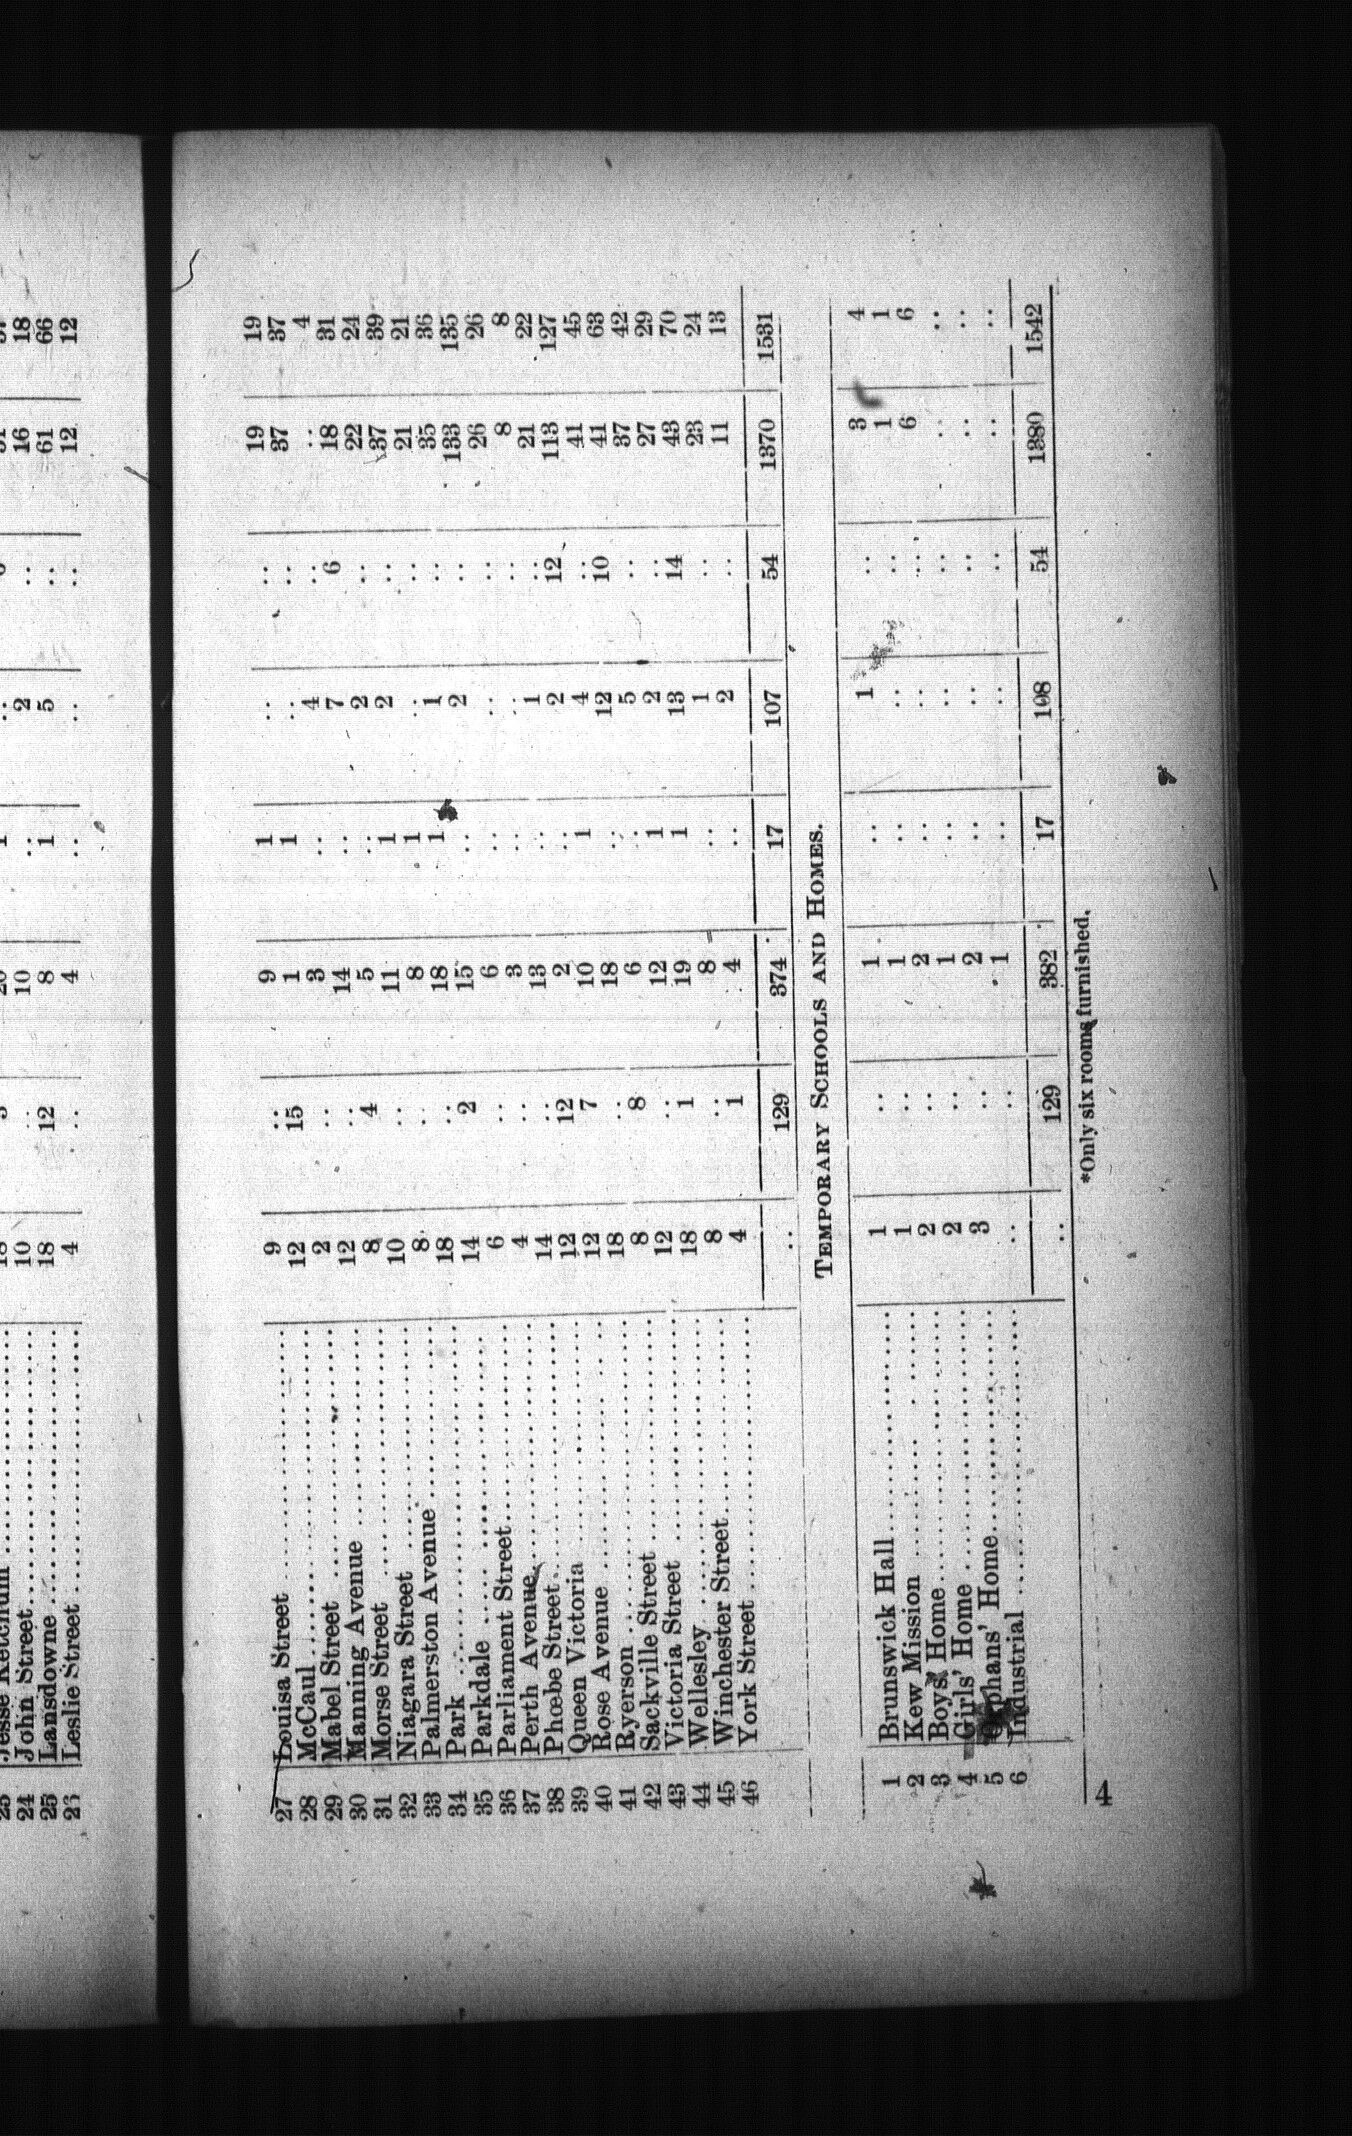 Jesse Ketchum
24 John Street 10 .. 10 .. 2 .. 16 18
25 Lansdowne 18 12 8 1 5 .. 61 66
26 Leslie Street 4 .. 4 .. .. .. 12 12
27 Louisa Street 9 .. 9 1 .. .. 19 19
28 McCaul 12 15 1 1 .. .. 37 37
29 Mabel Street 2 .. 3 .. 4 .. .. 4
30 Manning Avenue 12 .. 14 .. 7 6 18 31
31 Morse Street 8 4 5 .. 2 .. 22 24
32 Niagara Street 10 .. 11 1 2 .. 37 39
33 Palmerston Avenue 8 .. 8 1 .. .. 21 21
34 Park 18 .. 18 1 1 .. 35 36
35 Parkdale 14 2 15 .. 2 .. 133 135
36 Parliament Street 6 .. 6 .. .. .. 26 26
37 Perth Avenue 4 .. 3 .. .. .. 8 8
38 Phoebe Street 14 .. 13 .. 1 .. 21 22
39 Queen Victoria 12 12 2 .. 2 12 113 127
40 Rose Avenue 12 7 10 1 4 .. 41 45
41 Ryerson 18 .. 18 .. 12 10 41 63
42 Sackville Street 8 8 6 .. 5 .. 37 42
43 Victoria Street 12 .. 12 1 2 .. 27 29
44 Wellesley 18 1 19 1 13 14 43 70
45 Winchester Street 8 .. 8 .. 1 .. 23 24
46 York Street 4 1 4 .. 2 .. 11 13
.. 129 374 17 107 54 1370 1531
TEMPORARY SCHOOLS AND HOMES.
1 Brunswick Hall 1 .. 1 .. 1 .. 3 4
2 Kew Mission 1 .. 1 .. .. .. 1 1
3 Boys' Home 2 .. 2 .. .. .. 6 6
4 Girls' Home 2 .. 1 .. .. .. .. ..
5 Orphans' Home 3 .. 2 .. .. .. .. ..
6 Industrial .. .. 1 .. .. .. .. ..
.. 129 382 17 108 54 1380 1542
*Only six rooms furnished.
4